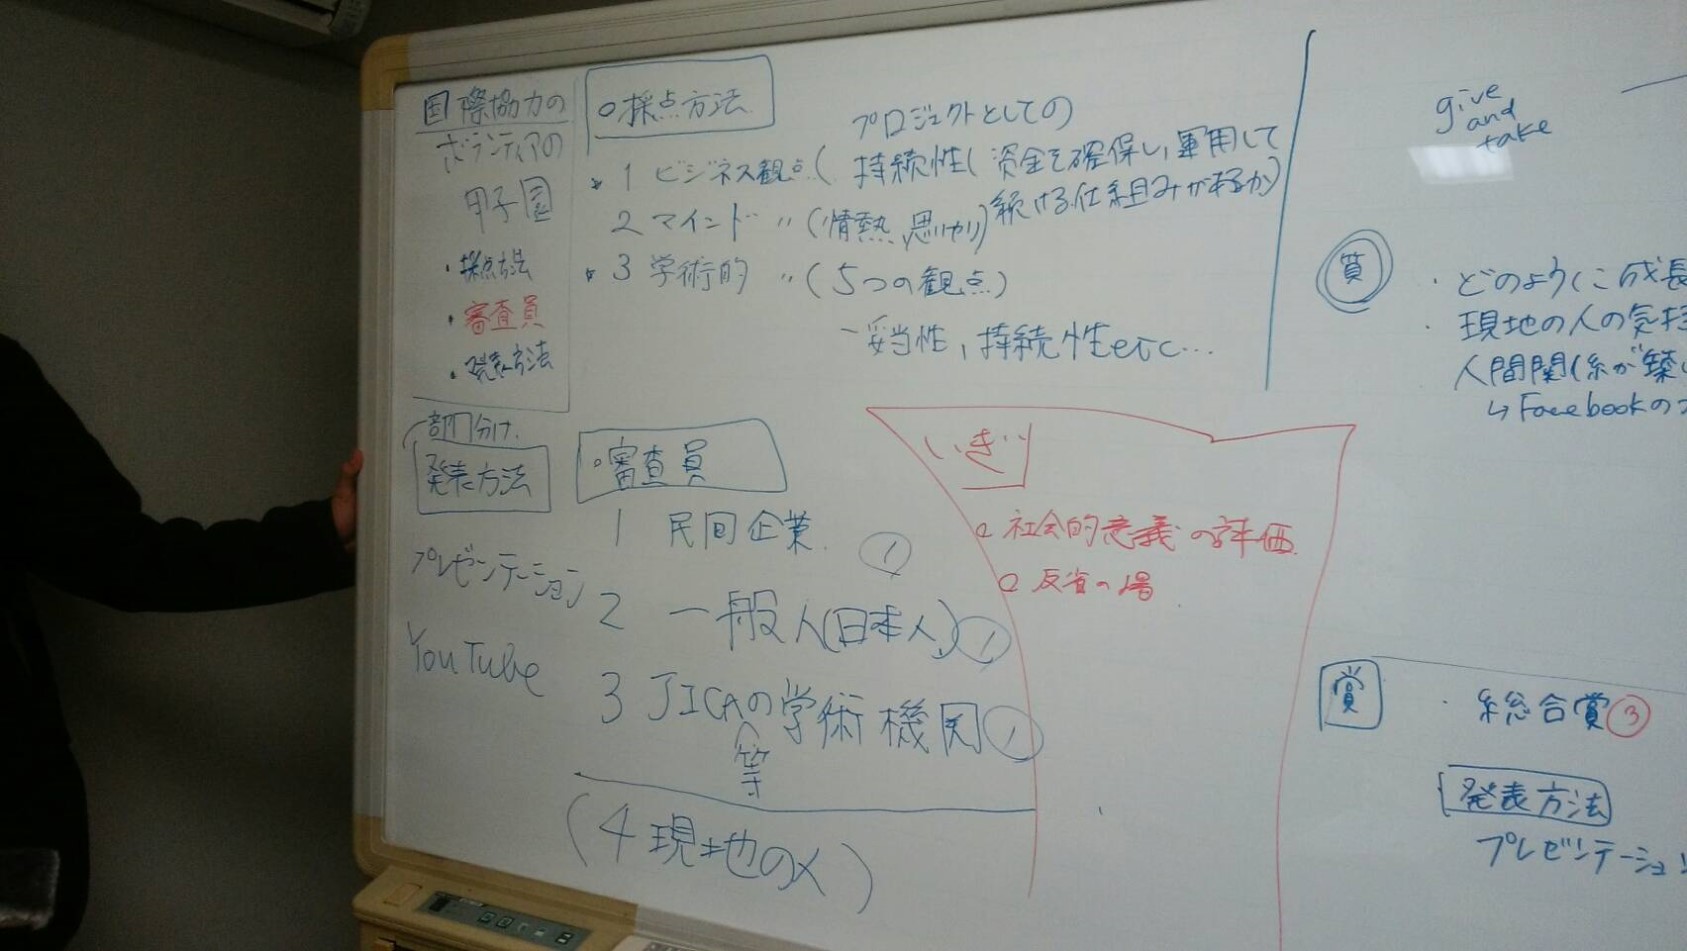 国際協力の
ボランティアの
甲子園
・採点方法
・審査員
・発表方法
○採点方法
プロジェクトとしての
* 1 ビジネス観点( 持続性( 資金を確保し、運用して
続ける仕組みがあるか)
2 マインド 〃 (情熱、思いやり)
* 3 学術的 〃 (5つの観点)
－妥当性, 持続性etc…
部門分け.
発表方法
プレゼンテーション
YouTube
○審査員
1 民間企業 ①
2 一般人(日本人) ①
3 JICAの学術機関 ①
等
(4 現地の人)
いぎ
○ 社会的意義の評価
○ 反省の場
give
and
take
質
・どのように成長
・現地の人の気持
人間関係が築
↳ Facebookの
賞
・総合賞③
発表方法
プレゼンテーション